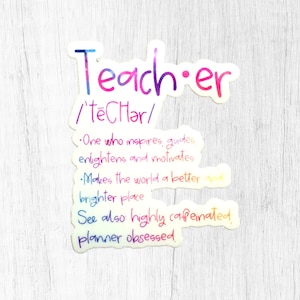 Teach•er
/'tēCHər/
•One who inspires, guides,
enlightens and motivates.
•Makes the world a better and
brighter place
See also: highly caffeinated,
planner obsessed.